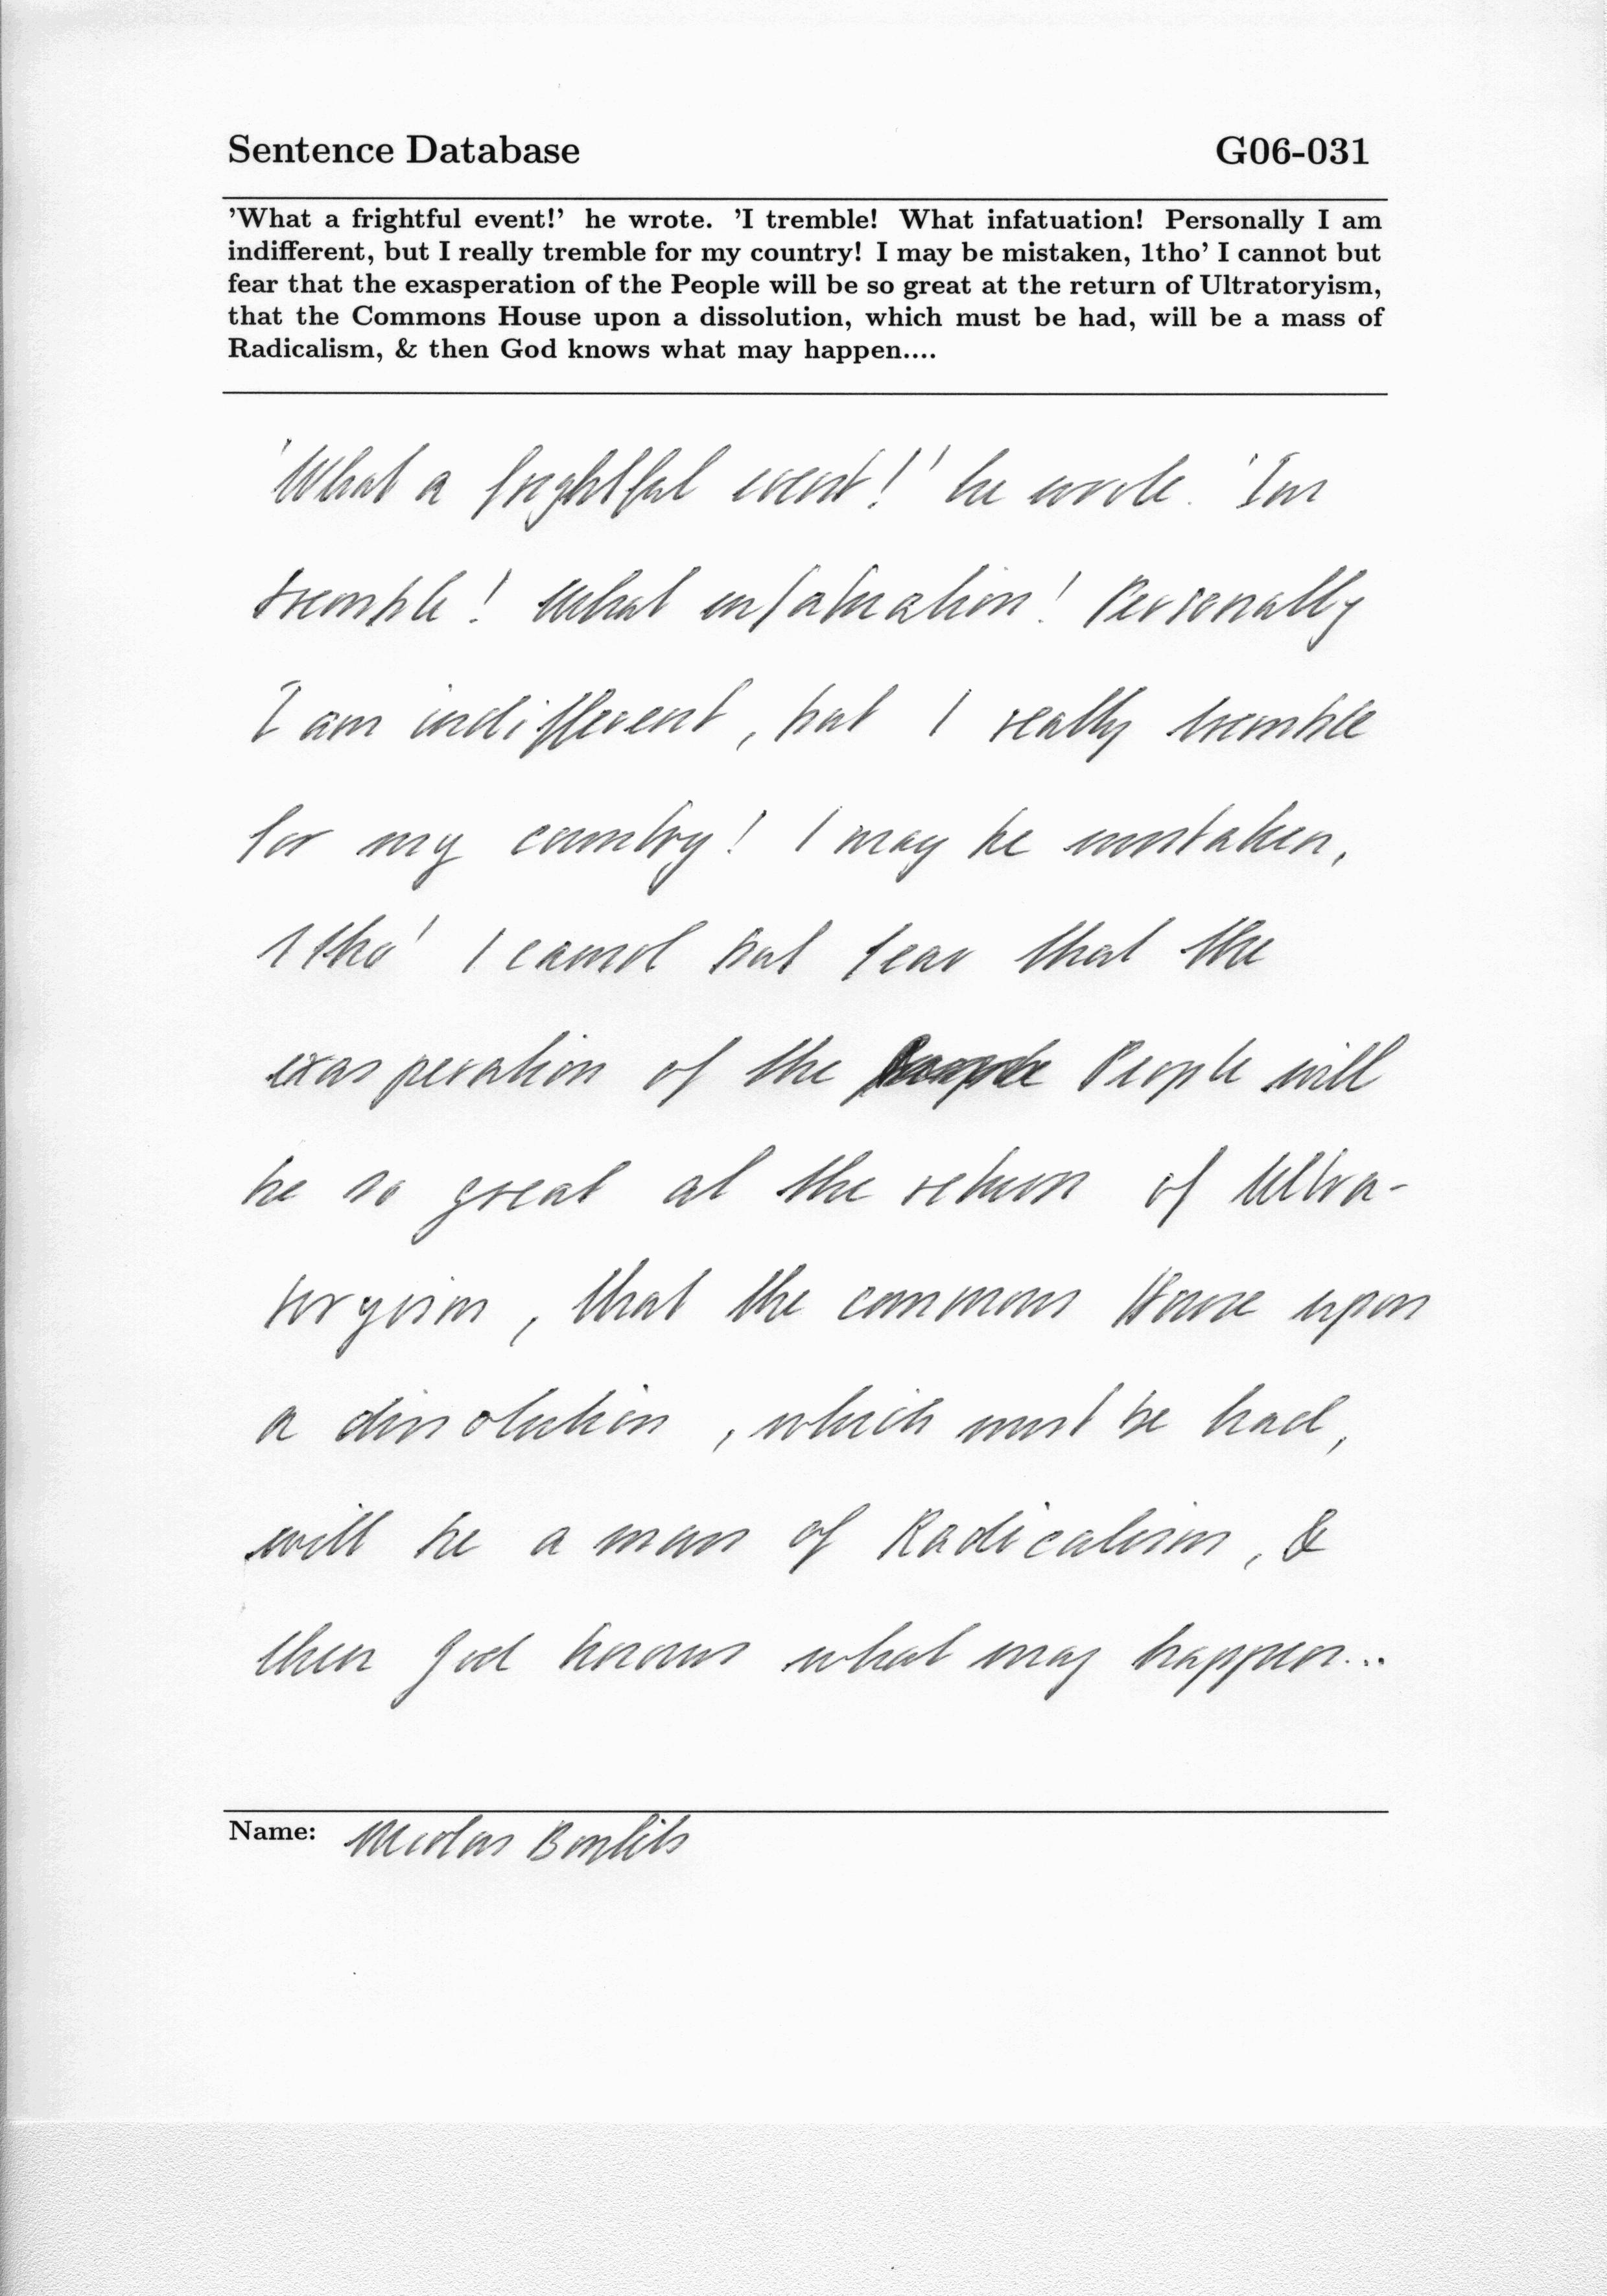 Sentence Database G06-031
'What a frightful event!' he wrote. 'I tremble! What infatuation! Personally I am
indifferent, but I really tremble for my country! I may be mistaken, 1tho' I cannot but
fear that the exasperation of the People will be so great at the return of Ultratoryism,
that the Commons House upon a dissolution, which must be had, will be a mass of
Radicalism, & then God knows what may happen....
'What a frightful event!' he wrote. 'Im
tremble! What infatuation! Personally
I am indifferent, but I really tremble
for my country! I may be mistaken,
1tho' I cannot but fear that the
exasperation of the People will
be so great at the return of Ultra-
toryism, that the commons House upon
a dissolution, which must be had,
will be a mass of Radicalism, &
then God knows what may happen...
Name: